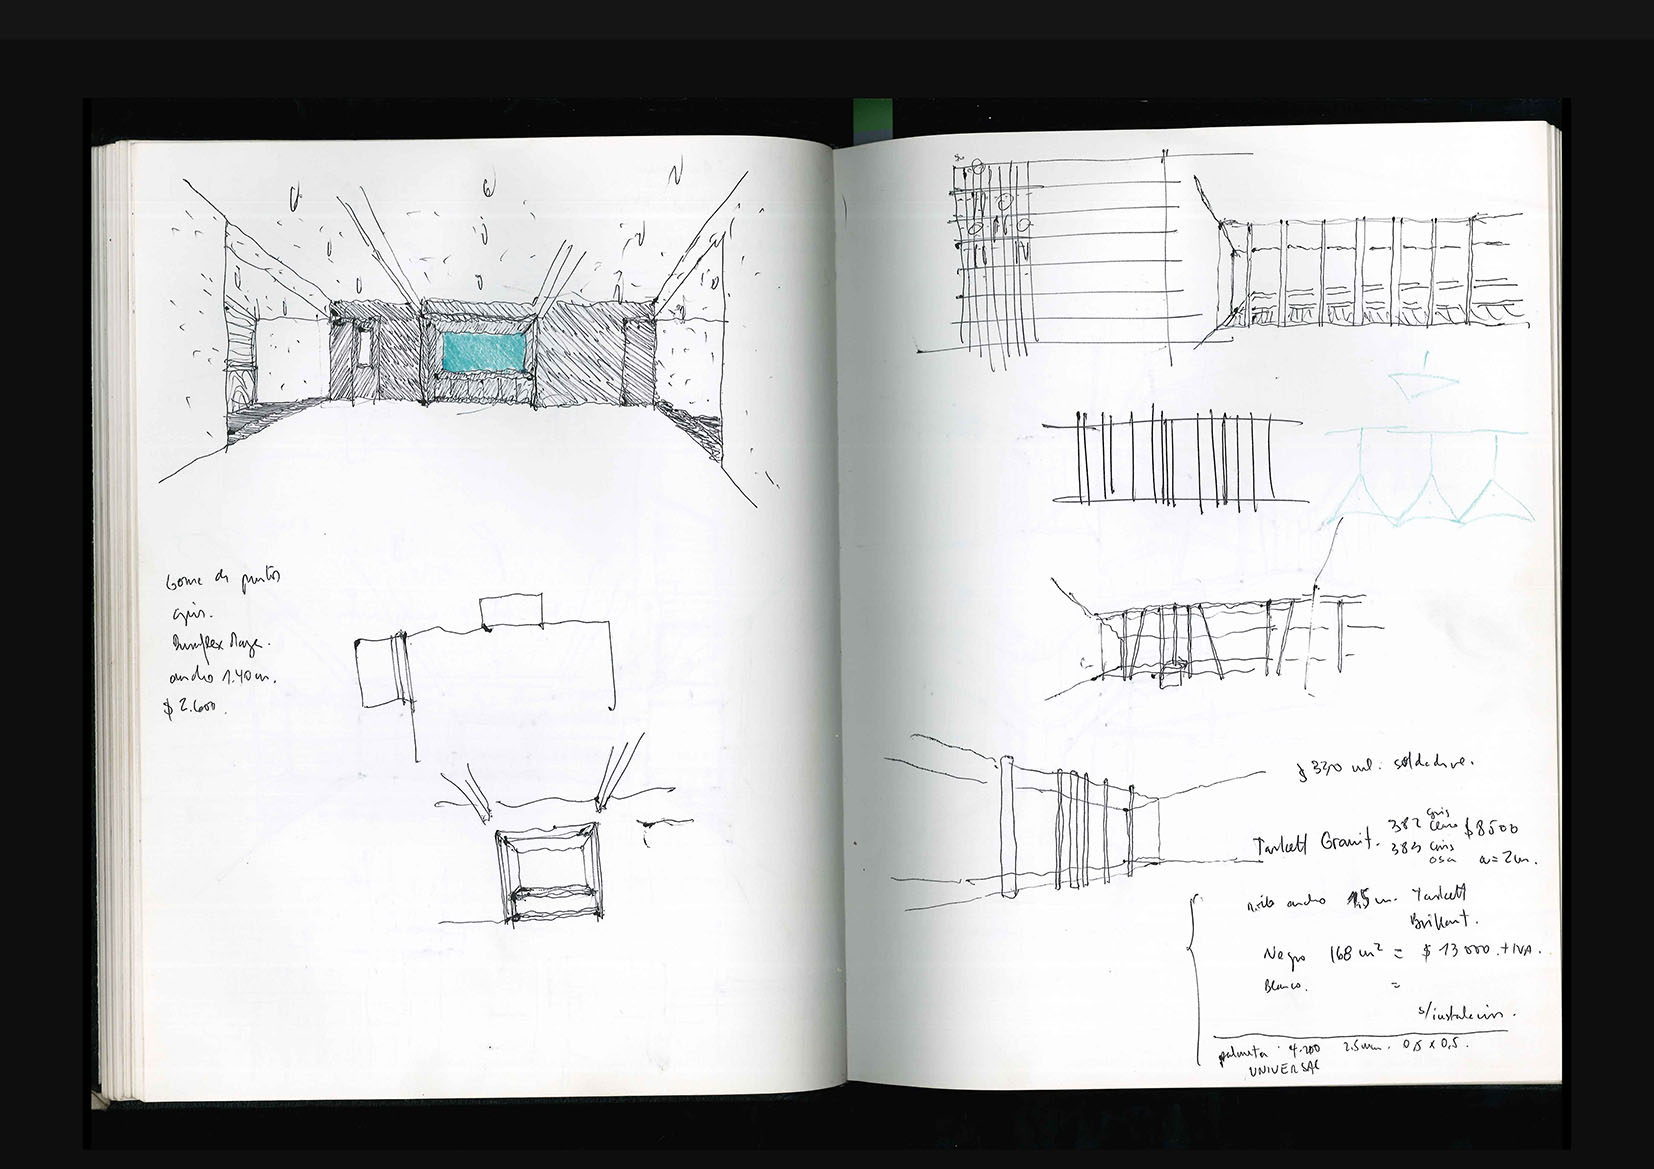 Goma de puntos
gris.
ancho 1.40 m.
$ 2.600.
$ 330 ml. soldadura.
Tarkett Granit. 382 gris $8500
383 gris
a = 2 m.
ancho 1,5 m. Tarkett
Brillant.
Negro 168 m² = $ 13 000 + IVA.
Blanco. =
s/instalación.
palmeta 4.200 2.5 mm. 0,5 x 0,5.
UNIVERSAL